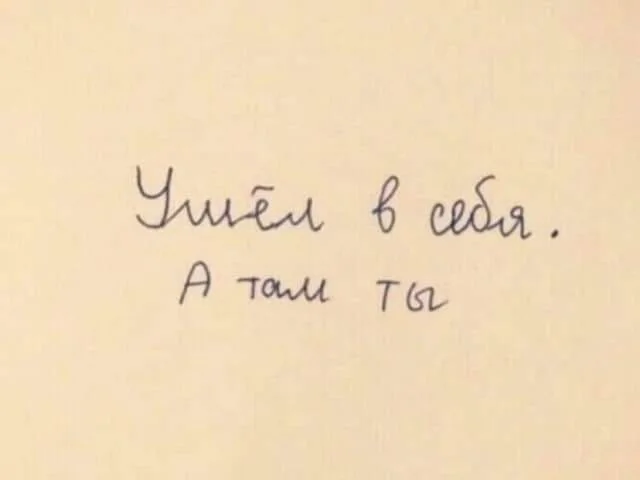 Ушёл в себя.
А там ты